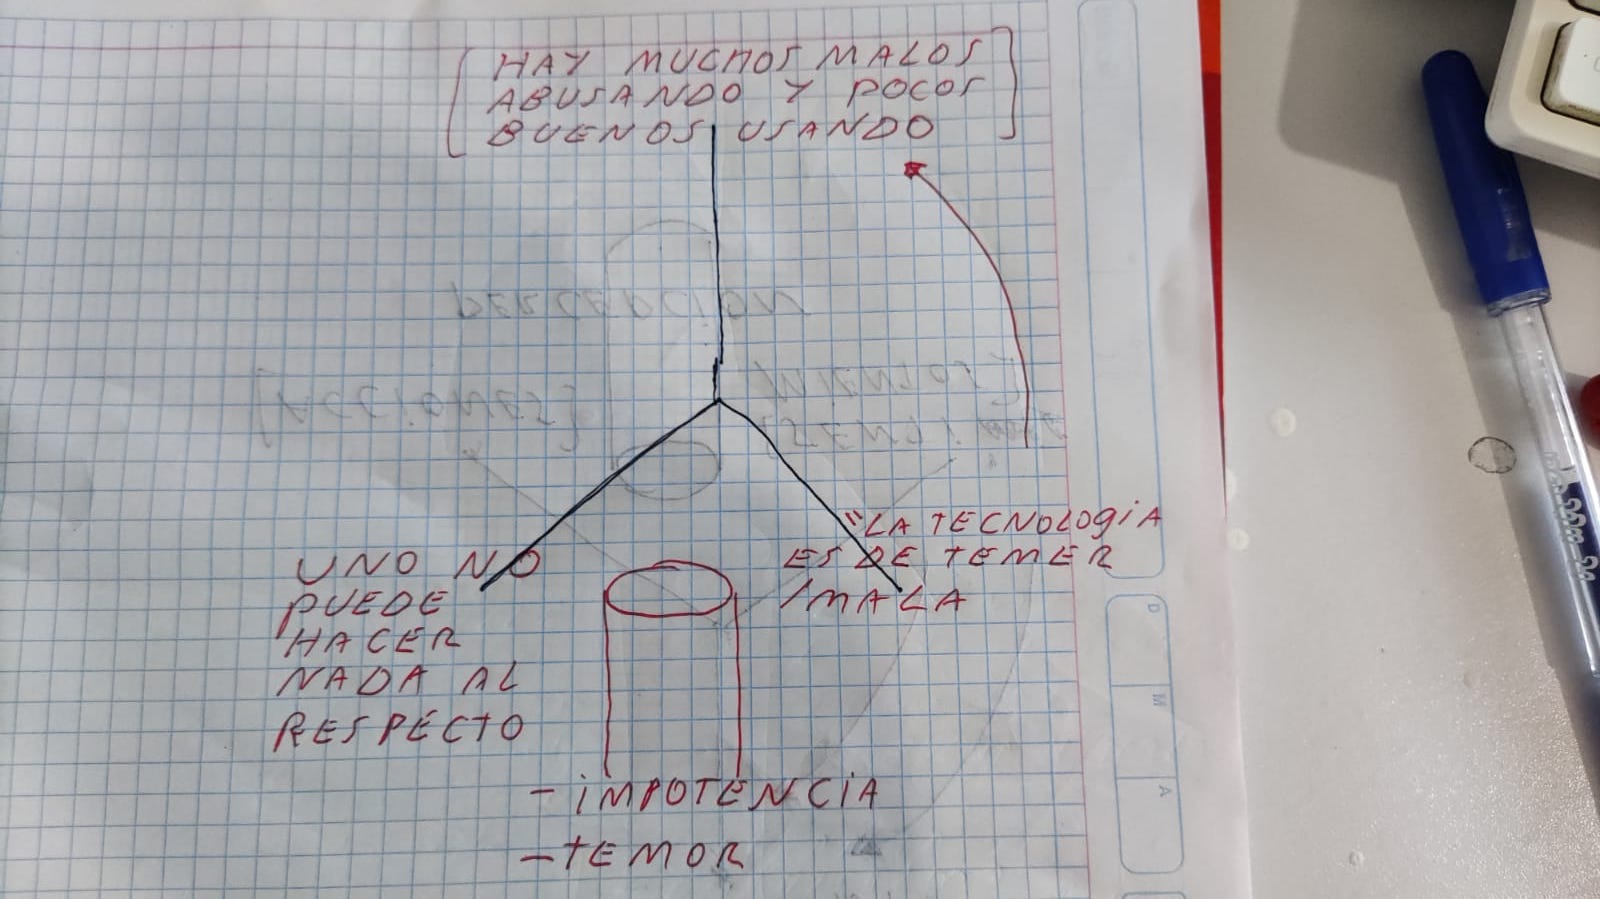 HAY MUCHOS MALOS
ABUSANDO Y POCOS
BUENOS USANDO
PERCEPCION
[ACCIONES]
[SENTI
MIENTOS]
"LA TECNOLOGIA
ES DE TEMER
/MALA
UNO NO
PUEDE
HACER
NADA AL
RESPECTO
- IMPOTENCIA
- TEMOR
D
M
A